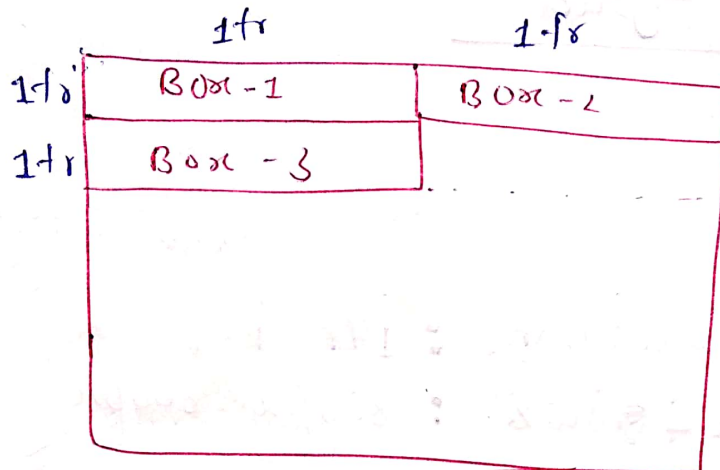 1fr 1fr
1fr Box-1 Box-2
1fr Box-3